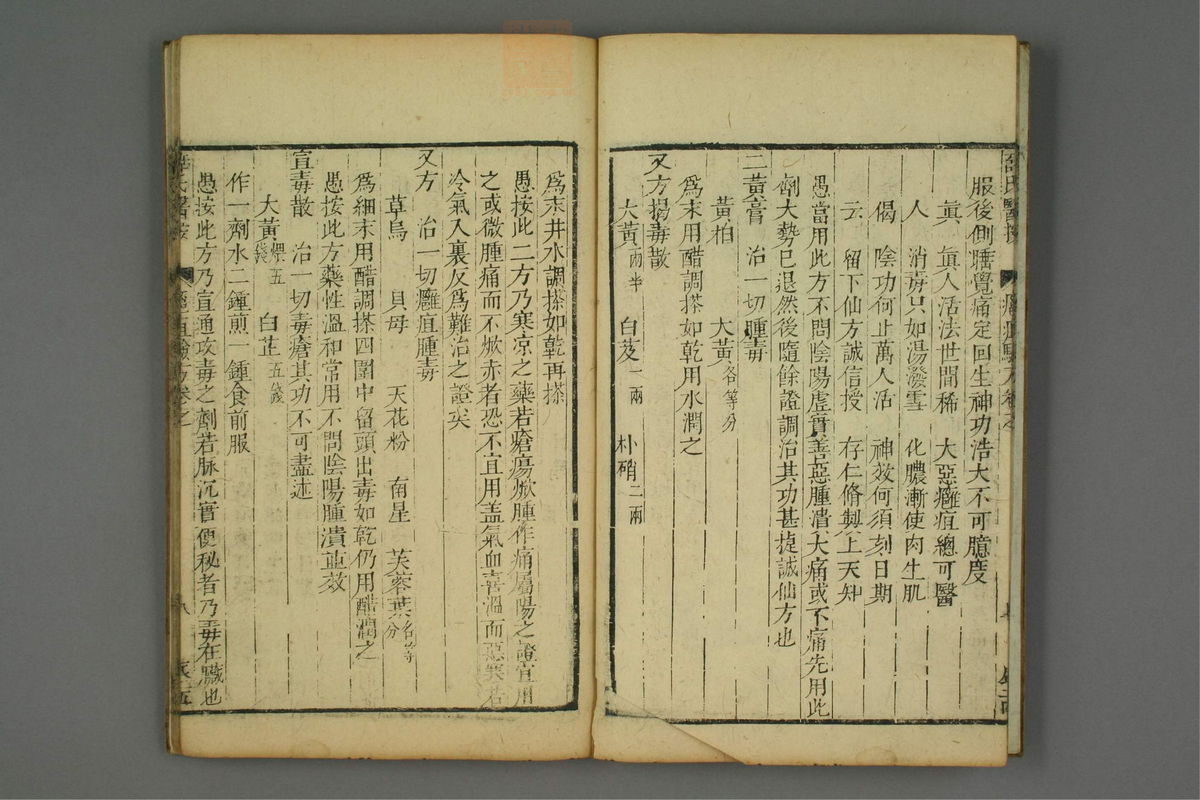 服後側睡覺痛定回生神功浩大不可臆度
真　真人活法世間稀　大惡癰疽總可醫
人　消毒只如湯潑雪　化膿漸使肉生肌
偈　陰功何止萬人活　神效何須刻日期
云　留下仙方誠信授　存仁脩製上天知
愚當用此方不問陰陽虛實善惡腫潰大痛或不痛先用此
劑大勢已退然後隨餘證調治其功甚捷誠仙方也
二黃膏　治一切腫毒
黃柏　大黃各等分
為末用醋調搽如乾用水潤之
又方搨毒散
大黃兩半　白芨一兩　朴硝二兩
為末井水調搽如乾再搽
愚按此二方乃寒凉之藥若瘡瘍焮腫作痛屬陽之證宜用
之或微腫痛而不焮赤者恐不宜用盖氣血喜溫而惡寒若
冷氣入裏反為難治之證矣
又方　治一切癰疽腫毒
草烏　貝母　天花粉　南星　芙蓉葉各等分
為細末用醋調搽四圍中留頭出毒如乾仍用醋潤之
愚按此方藥性溫和常用不問陰陽腫潰並效
宣毒散　治一切毒瘡其功不可盡述
大黃煨五錢　白芷五錢
作一劑水二鍾煎一鍾食前服
愚按此方乃宣通攻毒之劑若脉沉實便秘者乃毒在臟也